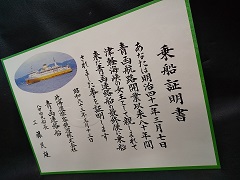 乗船証明書
あなたは明治四十一年三月七日
青函航路開業以来八十年間
津軽海峡の女王として親しまれて
来た青函連絡船
されました事を証明します
昭和六十三年三月十三日
北海道旅客鉄道株式会社
青函連絡船
船長